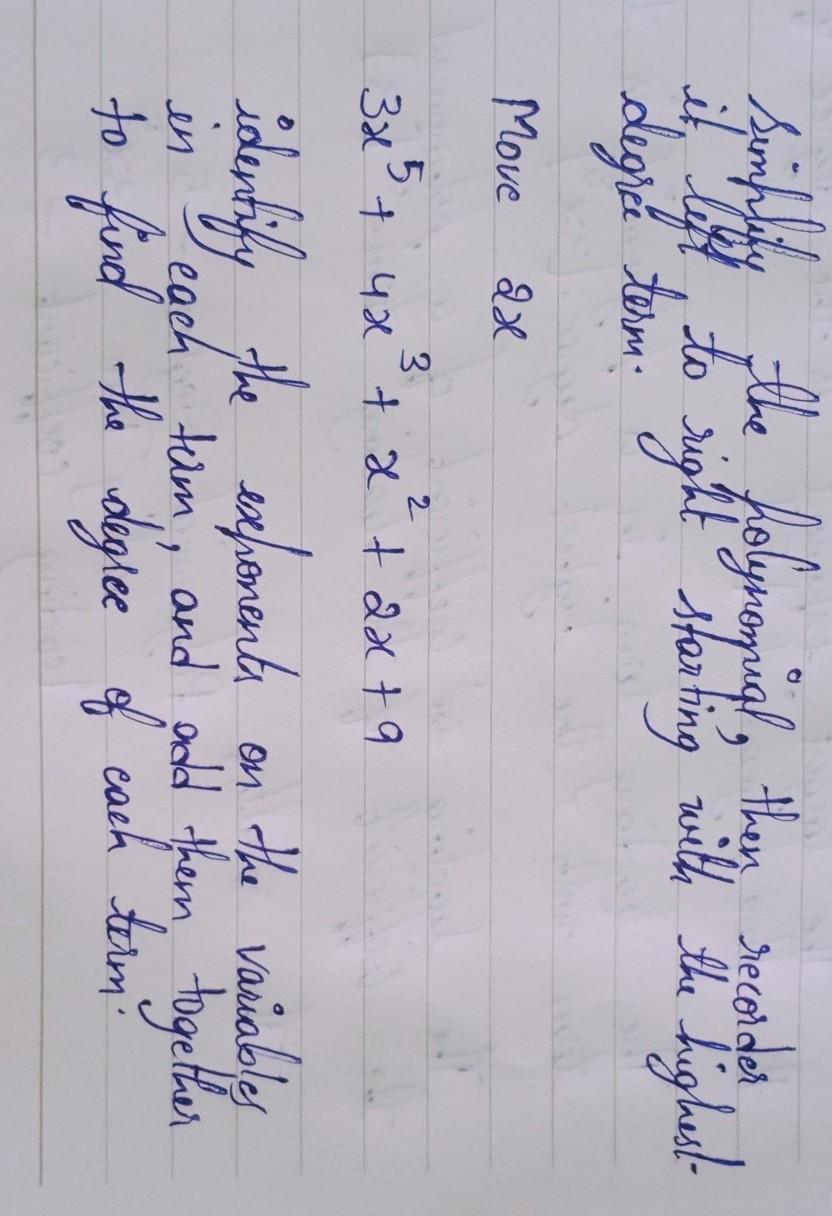 simplify the polynomial, then recorder
it left to right starting with the highest-
degree term.
Move 2x
3x⁵ + 4x³ + x² + 2x + 9
identify the exponents on the variables
in each term, and add them together
to find the degree of each term.